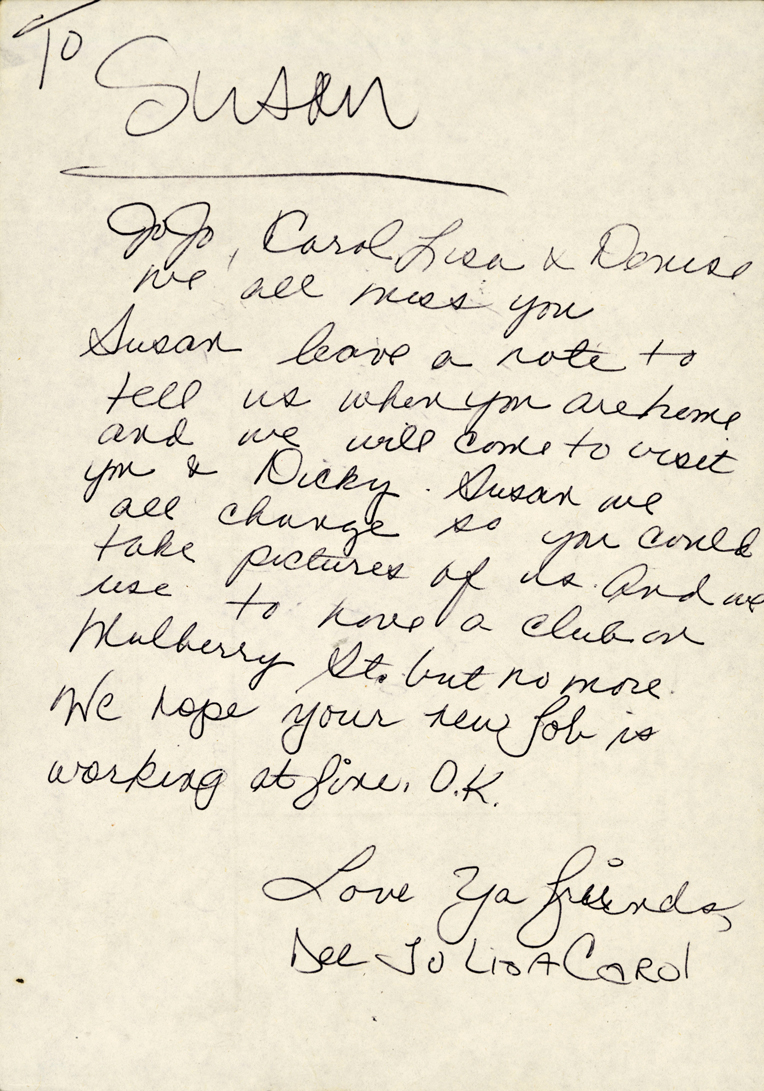 To
Susan
JoJo, Carol Lisa & Denise
we all miss you
Susan leave a note to
tell us when you are home
and we will come to visit
you & Dicky. Susan we
all change so you could
take pictures of us. And we
use to have a club on
Mulberry St. but no more.
We hope your new job is
working at fine. O.K.
Love Ya friends,
Dee JoLisACarol